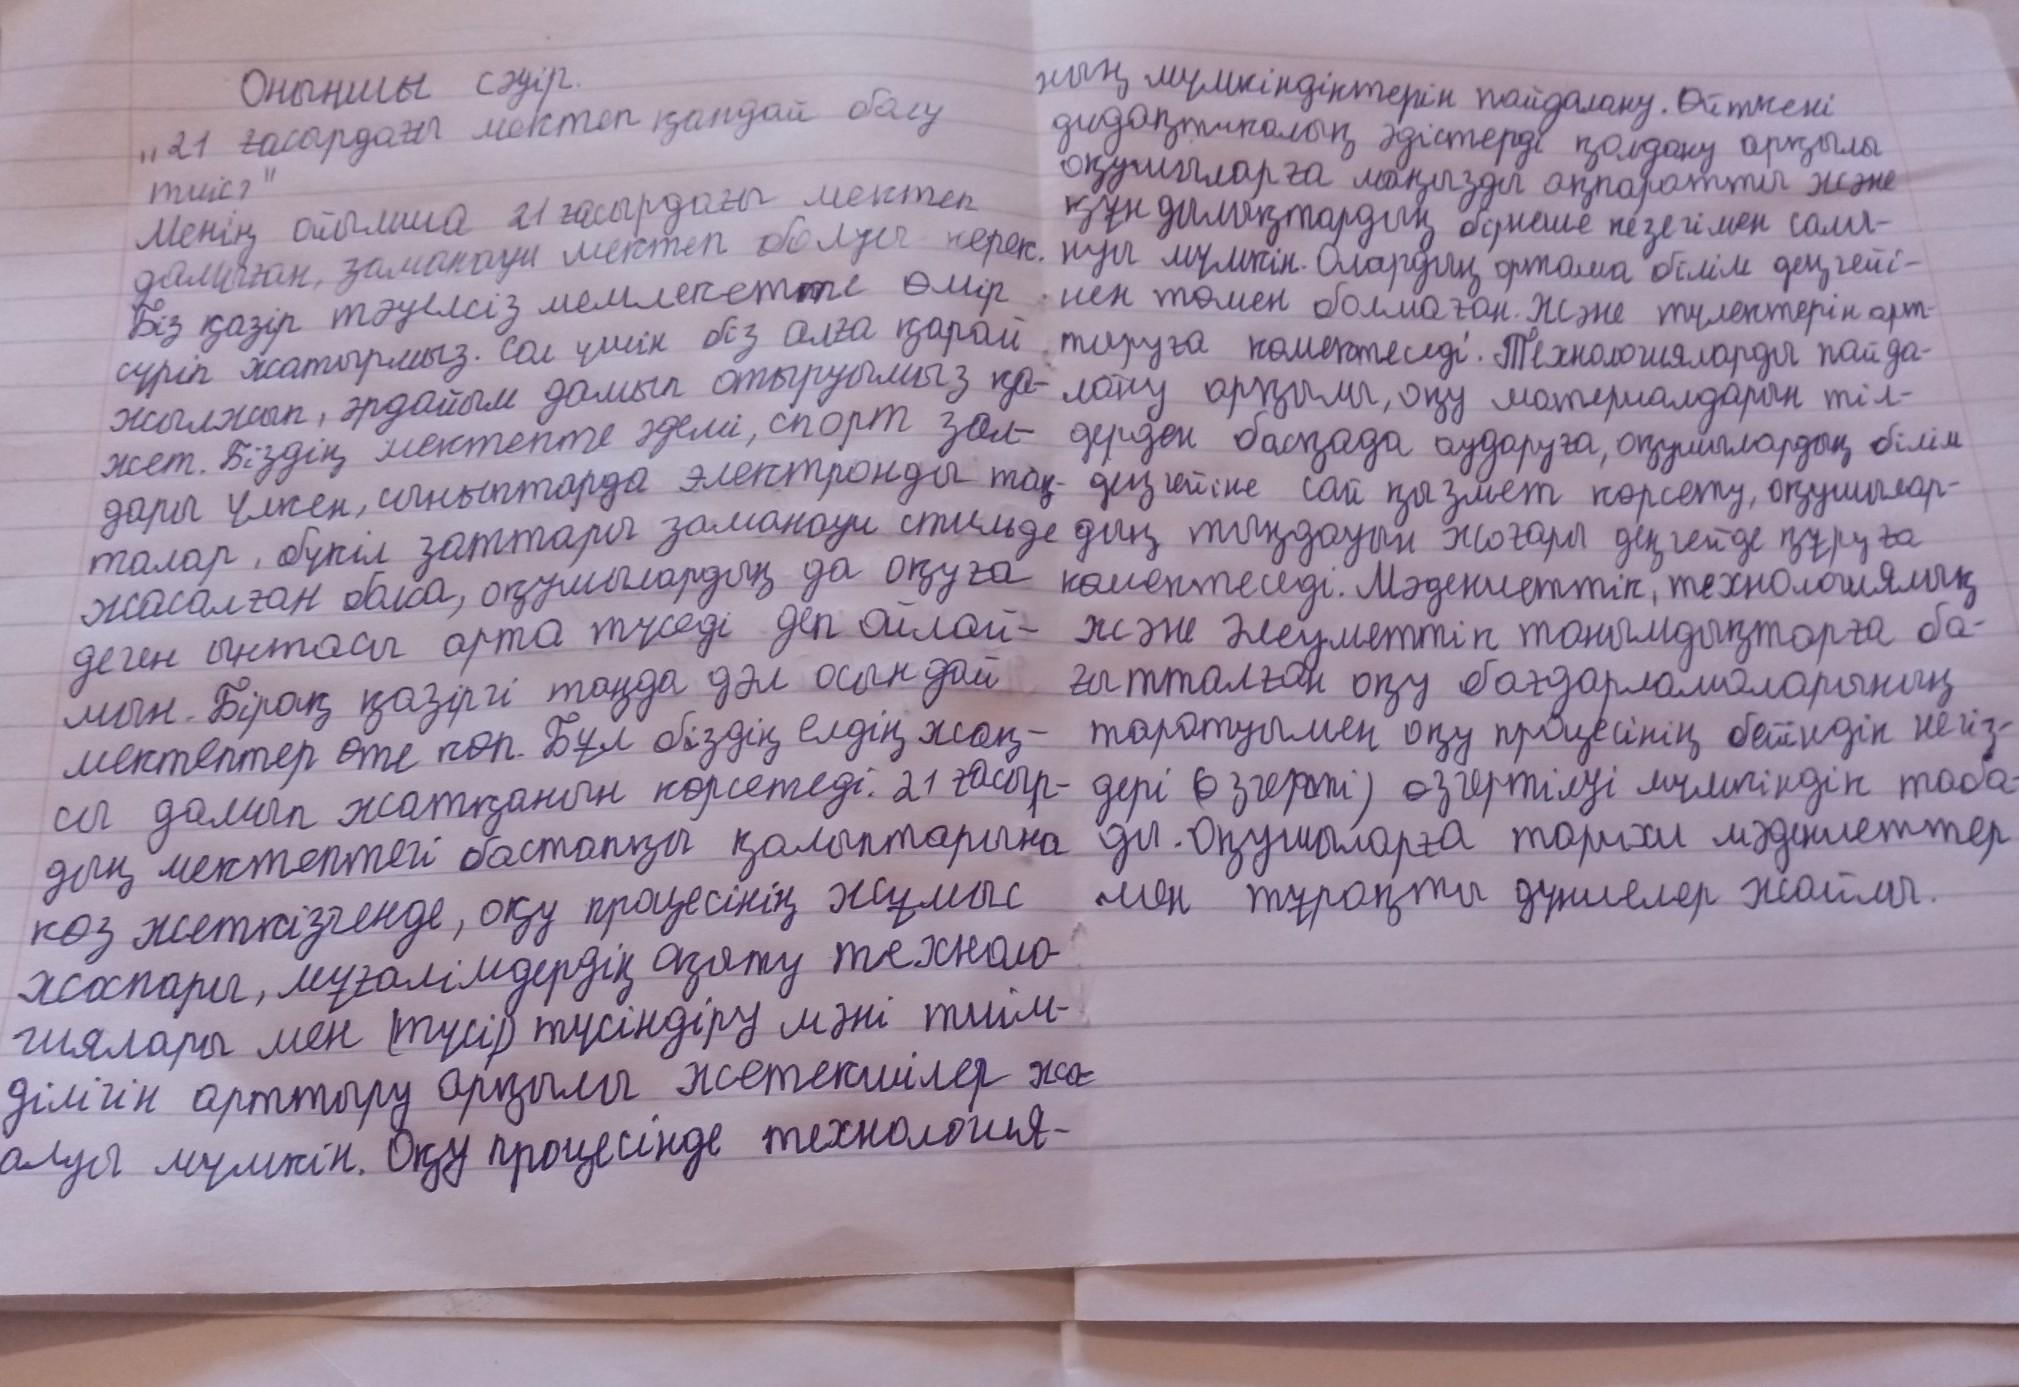 Оныншы сәуір.
"21 ғасырдағы мектеп қандай болу
тиіс?"
Менің ойымша 21 ғасырдағы мектеп
дамыған, заманауи мектеп болуы керек.
Біз қазір тәуелсіз мемлекетте өмір
сүріп жатырмыз. Сол үшін біз алға қарай
жылжып, әрдайым дамып отыруымыз қа-
жет. Біздің мектепте әдемі, спорт зал-
дары үлкен, сыныптарда электронды тақ-
талар, бүкіл заттары заманауи стильде
жасалған болса, оқушылардың да оқуға
деген ынтасы арта түседі деп ойлай-
мын. Бірақ қазіргі таңда дәл осындай
мектептер өте көп. Бұл біздің елдің жақ-
сы дамып жатқанын көрсетеді. 21 ғасыр-
дың мектептегі бастапқы қалыптарына
көз жеткізгенде, оқу процесінің жұмыс
жоспары, мұғалімдердің оқыту техноло-
гиялары мен (түсір) түсіндіру мәні тиім-
ділігін арттыру арқылы жетекшілер жа-
алуы мүмкін. Оқу процесінде технология-
ның мүмкіндіктерін пайдалану. Өйткені
дидактикалық әдістерді қолдану арқылы
оқушыларға маңызды ақпаратты және
құндылықтардың бірнеше кезегімен салы-
нуы мүмкін. Олардың ортама білім деңгейі-
нен төмен болмаған. Және түлектерін арт-
тыруға көмектеседі. Технологияларды пайда-
лану арқылы, оқу материалдарын тіл-
дерден басқада аударуға, оқушылардың білім
деңгейіне сай қызмет көрсету, оқушылар-
дың тыңдауын жоғары деңгейде құруға
көмектеседі. Мәдениеттік, технологиялық
және әлеуметтік танымдықтарға ба-
ғытталған оқу бағдарламаларының
таратуымен оқу процесінің бейіндік негіз-
дері (өзгерті) өзгертілуі мүмкіндік таба-
ды. Оқушыларға тарихи мәдениеттер
мен тұрақты дүниелер жайлы.